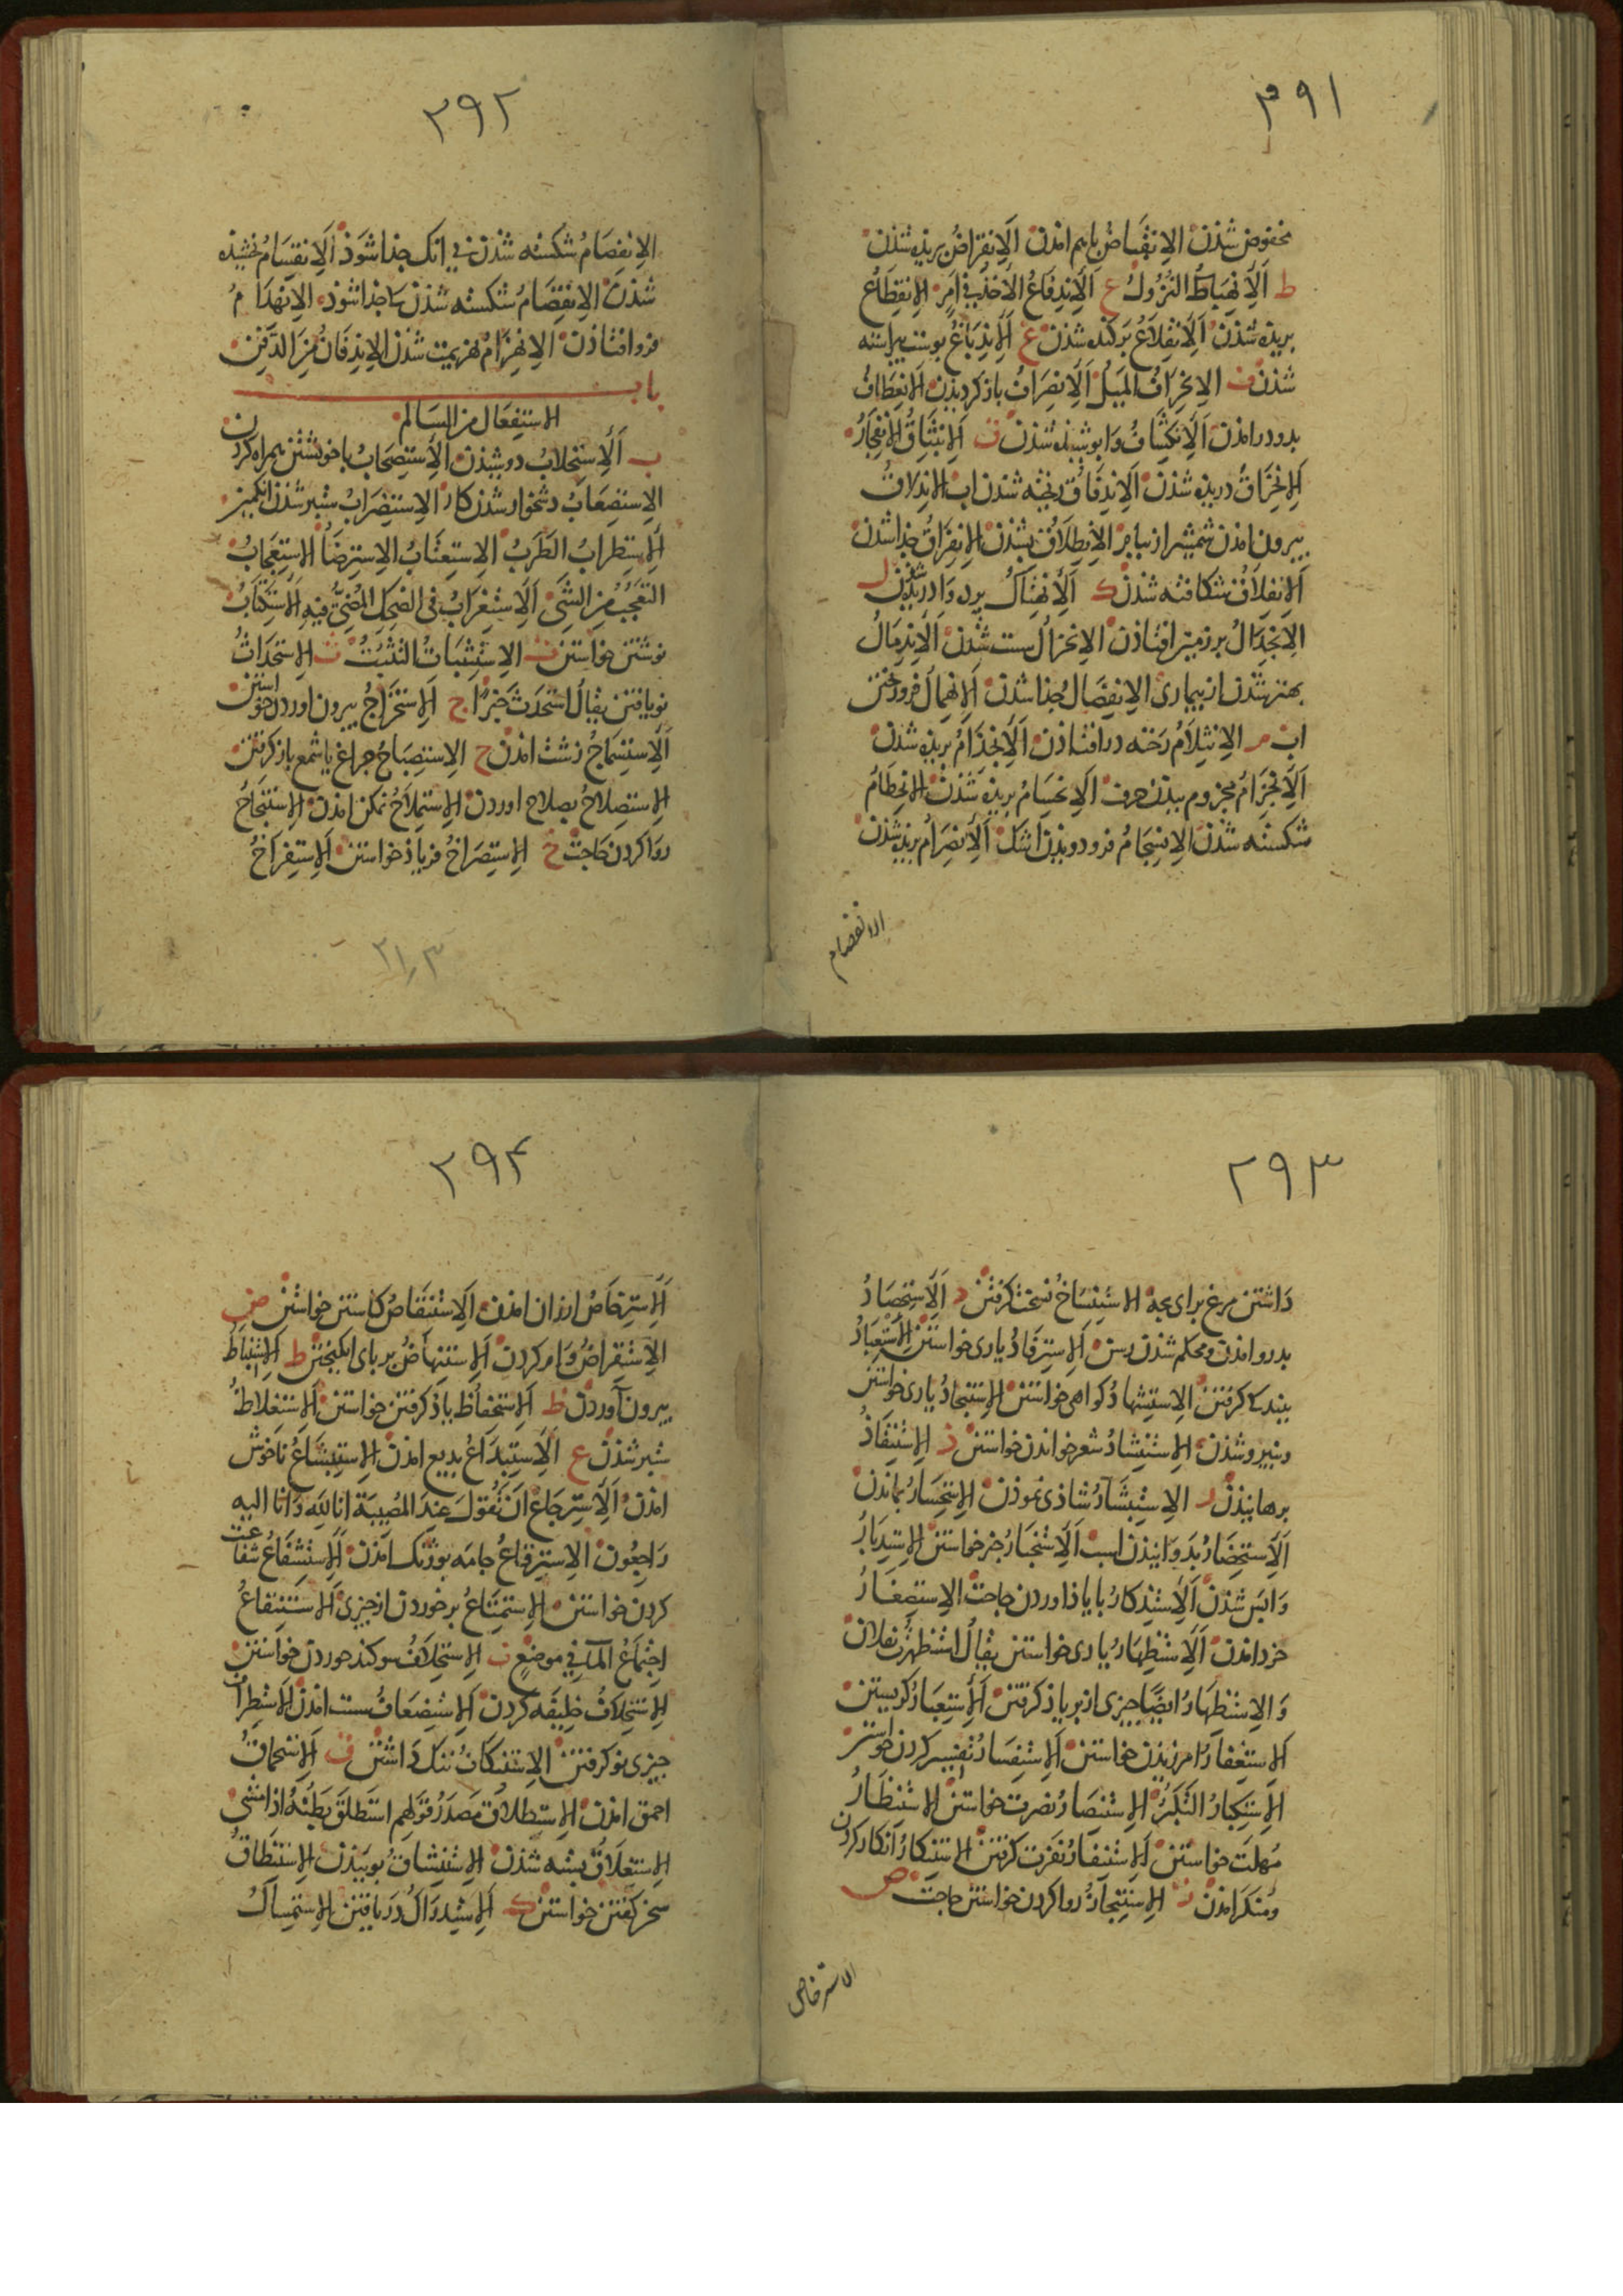 ٣٩١
مخفوض شذن الانقباض باهم امذن الانقراض بریذه شذن
ط الانهباط النزول ع الاندفاع الاخذ فی امر الانقطاع
بریذه شذن الانقلاع برکنده شذن غ الاندباغ پوست پیراسته
شذن ف الانحراف المیل الانصراف باز کردیذن الانعطاف
بدو درامذن الانکشاف وابوشیذه شذن ق الانبثاق الانفجار
الانخراق دریذه شذن الاندفاق ریخته شذن اب الاندلاق
بیرون امذن شمشیر از نیام الانطلاق بشذن الانفراق جذا شذن
الانفلاق شکافته شذن ک الانهتاک پرده وادریذه شذن ل
الانجدال بر زمین افتاذن الانخزال سست شذن الاندمال
بهتر شذن از بیماری الانفصال جذا شذن الانهمال فرو ریختن
اب م الانثلام رخنه درافتاذن الانجذام بریذه شذن
الانجزام مجزوم بیذن حرف الانحسام بریذه شذن الانحطام
شکسته شذن الانسجام فرو دویذن اشک الانصرام بریذه شذن
الانفصام
٢٩٢
الانفصام شکسته شذن بی انک جذا شوذ الانقسام بخشیذه
شذن الانقصام شکسته شذن تا جذا شوذ الانهدام
فرو افتاذن الانهزام بهزیمت شذن ن الاندفان من الدفن
باب
الاستفعال من السالم
ب الاستحلاب دوشیذن الاستصحاب با خویشتن همراه کردن
الاستصعاب دشخوار شذن کار الاستضراب ستبر شذن انکبین
الاستطراب الطرب الاستعتاب الاسترضا الاستعجاب
التعجب من الشی الاستغراب فی الضحک المضی فیه الاستکتاب
نوشتن خواستن ت الاستثبات التثبت ث الاستحداث
نو یافتن یقال استحدث خبرا ج الاستخراج بیرون اوردن خواستن
الاستسماج زشت امذن ح الاستصباح چراغ یا شمع باز کرفتن
الاستصلاح بصلاح اوردن الاستملاح نمکن امذن الاستنجاح
روا کردن حاجت خ الاستصراخ فریاذ خواستن الاستفراخ
٣١٫٣
٢٩٣
داشتن مرغ برای بچه الاستنساخ نسخت کرفتن د الاستحصاد
بدرو امذن ومحکم شذن رسن الاسترفاد یاری خواستن الاستعباد
ببندکی کرفتن الاستشهاد کواهی خواستن الاستنجاد یاری خواستن
ونیرو شذن الاستنشاد شعر خواندن خواستن ذ الاستنقاذ
برهانیذن ر الاستبشار شاذی نموذن الاستحسار بماندن
الاستحضار بدوانیذن اسب الاستخبار خبر خواستن الاستدبار
واپس شذن الاستذکار بایاذ اوردن حاجت الاستصغار
خرد امذن الاستظهار یاری خواستن یقال استظهرت بفلان
والاستظهار ایضا چیزی از بر یاذ کرفتن الاستعبار کریستن
الاستغفار امرزیذن خواستن الاستفسار تفسیر کردن خواستن
الاستکبار التکبر الاستنصار نصرت خواستن الاستنظار
مهلت خواستن الاستنفار نفرت کرفتن الاستنکار انکار کردن
ومنکر امذن ز الاستنجاز روا کردن خواستن حاجت ص
الاسترخاص
٢٩۴
الاسترخاص ارزان امذن الاستنقاص کاستن خواستن ض
الاستقراض وام کردن الاستنهاض بر پای انکیختن ط الاستنباط
بیرون آوردن ظ الاستحفاظ یاذ کرفتن خواستن الاستغلاظ
ستبر شذن ع الاستبداع بدیع امذن الاستبشاع ناخوش
امذن الاسترجاع ان تقول عند المصیبة انا لله وانا الیه
راجعون الاسترقاع جامه بوژنک امذن الاستشفاع شفاعت
کردن خواستن الاستمتاع برخوردن از چیزی الاستنقاع
اجتماع الماء فی موضع ف الاستحلاف سوکند خوردن خواستن
الاستخلاف خلیفه کردن الاستضعاف سست امذن الاستطراف
چیزی نو کرفتن الاستنکاف ننک داشتن ق الاستحماق
احمق امذن الاستطلاق مصدر قولهم استطلق بطنه اذا مشی
الاستغلاق بسته شذن الاستنشاق بوییذن الاستنطاق
سخن کفتن خواستن ک الاستدراک دریافتن الاستمساک